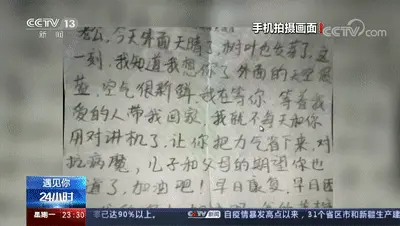 CCTV 13
新闻
手机拍摄画面
CCTV.com
老公,今天外面天晴了,树叶也发芽了,这
一刻,我知道我想你了,外面的天空很
蓝,空气很新鲜,我在等你,等着我
爱的人带我回家,我就不每天和你
用对讲机了,让你把力气省下来,对
抗病魔,儿子和父母的期望你也
道了,加油吧!早日康复,早日团
遇见你
24小时
星期一 23:30 率已达90%以上。 自疫情暴发高点以来,31个省区市和新疆生产建